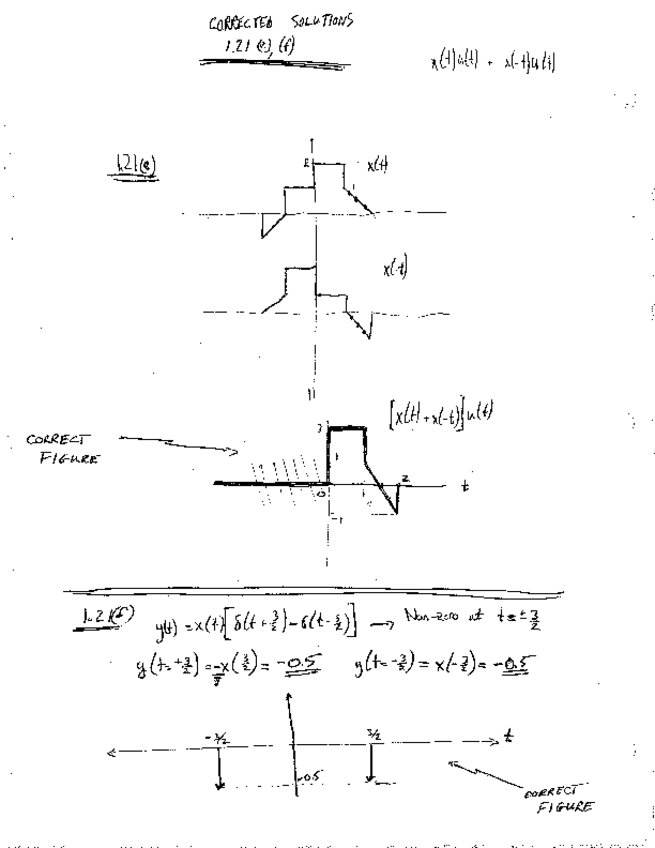 CORRECTED SOLUTIONS
1.21 (e), (f)
x(t)u(t) + x(-t)u(t)
1.21(e)
2
x(t)
1
x(-t)
[x(t)+x(-t)]u(t)
CORRECT
FIGURE
3
1
0
1
2
t
-1
1.21(f)
y(t) = x(t)[δ(t+3/2)-δ(t-3/2)] → Non-zero at t=±3/2
y(t=+3/2) = -x(3/2) = -0.5 y(t=-3/2) = x(-3/2) = -0.5
-3/2
3/2
t
-0.5
CORRECT
FIGURE